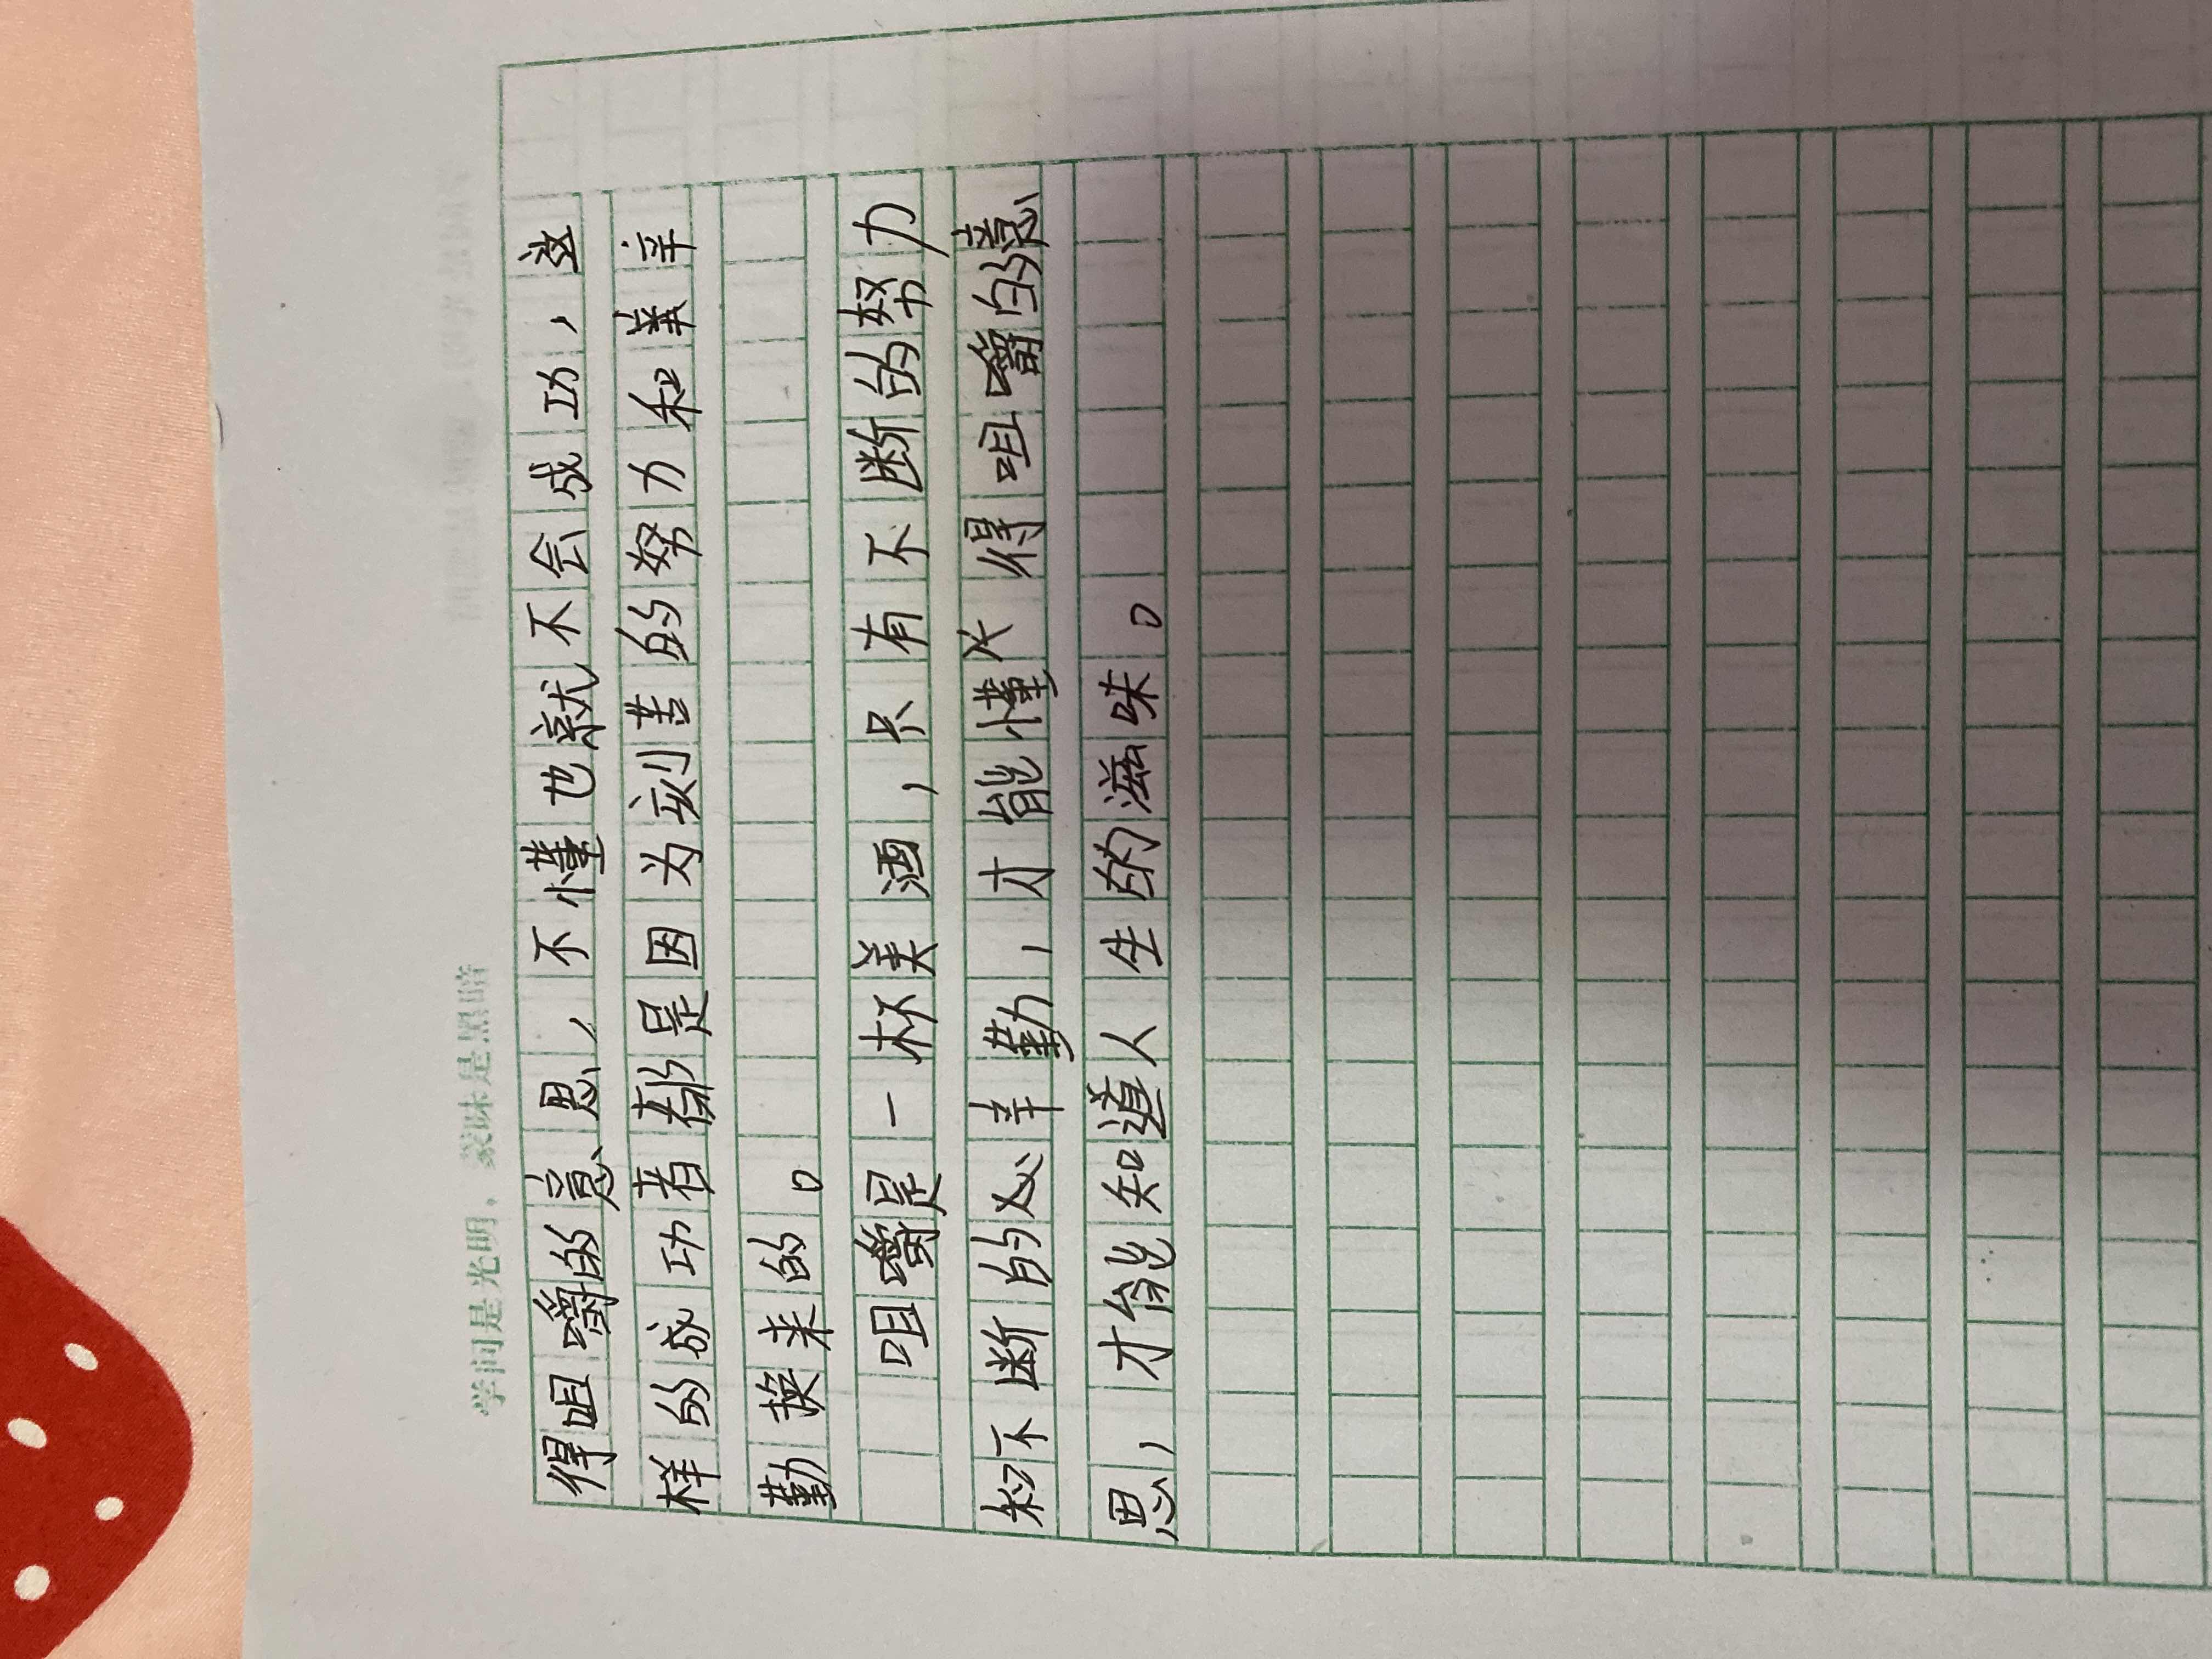 学问是光明，蒙昧是黑暗
得咀嚼的意思，不懂也就不会成功，这
样的成功者都是因为刻苦的努力和辛
勤换来的。
咀嚼是一杯美酒，只有不断的努力
和不断的处辛勤，才能懂得咀嚼的意
思，才能知道人生的滋味。